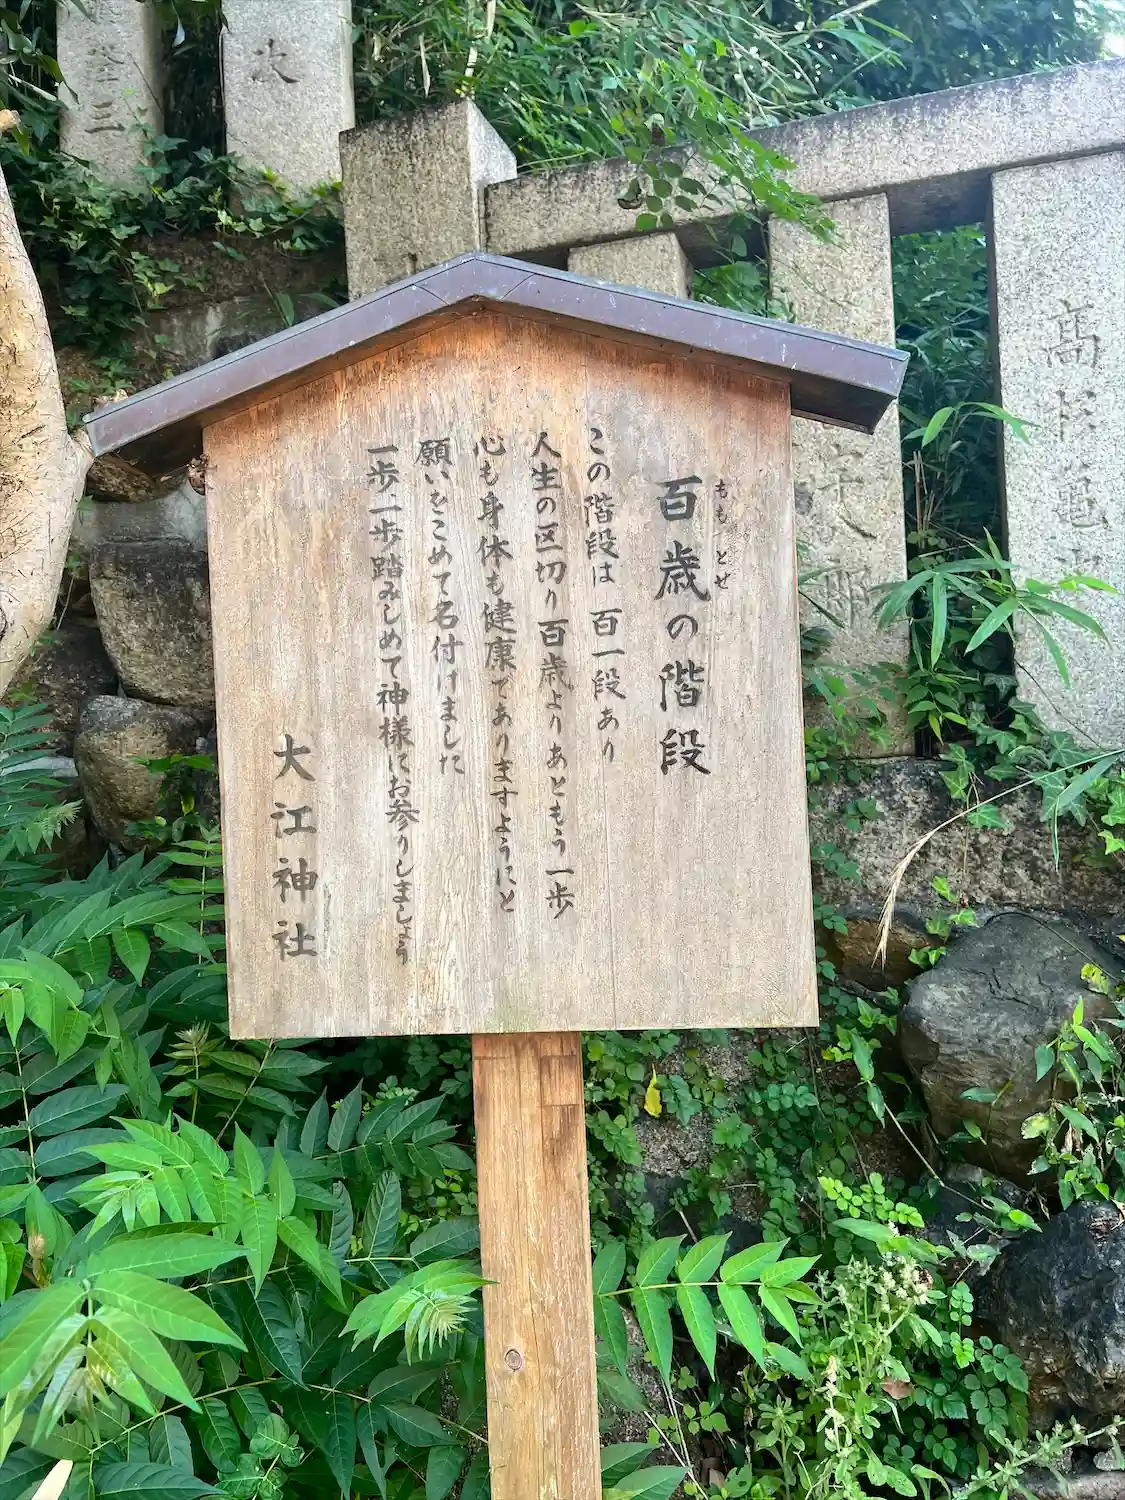 百歳の階段
ももとせ
この階段は 百一段あり
人生の区切り百歳よりあともう一歩
心も身体も健康でありますようにと
願いをこめて名付けました
一歩、一歩踏みしめて神様にお参りしましょう
大江神社
高
亀
三